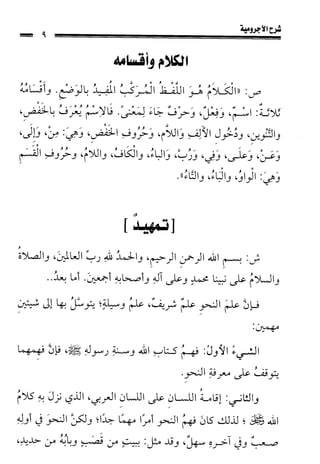 شرح الآجرومية
٩
الكلام وأقسامه
ص: «الْكَلَامُ هُوَ اللَّفْظُ الْمُرَكَّبُ الْمُفِيدُ بِالْوَضْعِ. وَأَقْسَامُهُ
ثَلَاثَةٌ: اسْمٌ، وَفِعْلٌ، وَحَرْفٌ جَاءَ لِمَعْنًى. فَالِاسْمُ يُعْرَفُ بِالْخَفْضِ،
وَالتَّنْوِينِ، وَدُخُولِ الْأَلِفِ وَاللَّامِ، وَحُرُوفِ الْخَفْضِ، وَهِيَ: مِنْ، وَإِلَى،
وَعَنْ، وَعَلَى، وَفِي، وَرُبَّ، وَالْبَاءُ، وَالْكَافُ، وَاللَّامُ، وَحُرُوفِ الْقَسَمِ
وَهِيَ: الْوَاوُ، وَالْبَاءُ، وَالتَّاءُ».
[تمهيدٌ]
ش: بسم الله الرحمن الرحيم، والحمدُ للهِ ربِّ العالمينَ، والصلاةُ
والسلامُ على نبينا محمدٍ وعلى آلهِ وأصحابهِ أجمعينَ. أما بعدُ..
فإنَّ علمَ النحوِ علمٌ شريفٌ، علمُ وسيلةٍ؛ يتوسلُ بها إلى شيئينِ
مهمينِ:
الشيءُ الأولُ: فهمُ كتابِ اللهِ وسنةِ رسولهِ ﷺ، فإنَّ فهمهما
يتوقفُ على معرفةِ النحوِ.
والثاني: إقامةُ اللسانِ على اللسانِ العربي، الذي نزلَ بهِ كلامُ
الله ﷻ؛ لذلك كانَ فهمُ النحوِ أمرًا مهمًا جدًا؛ ولكنَّ النحوَ في أولهِ
صعبٌ وفي آخرهِ سهلٌ، وقد مثلَ: ببيتٍ من قصبٍ وبابُهُ من حديدٍ،